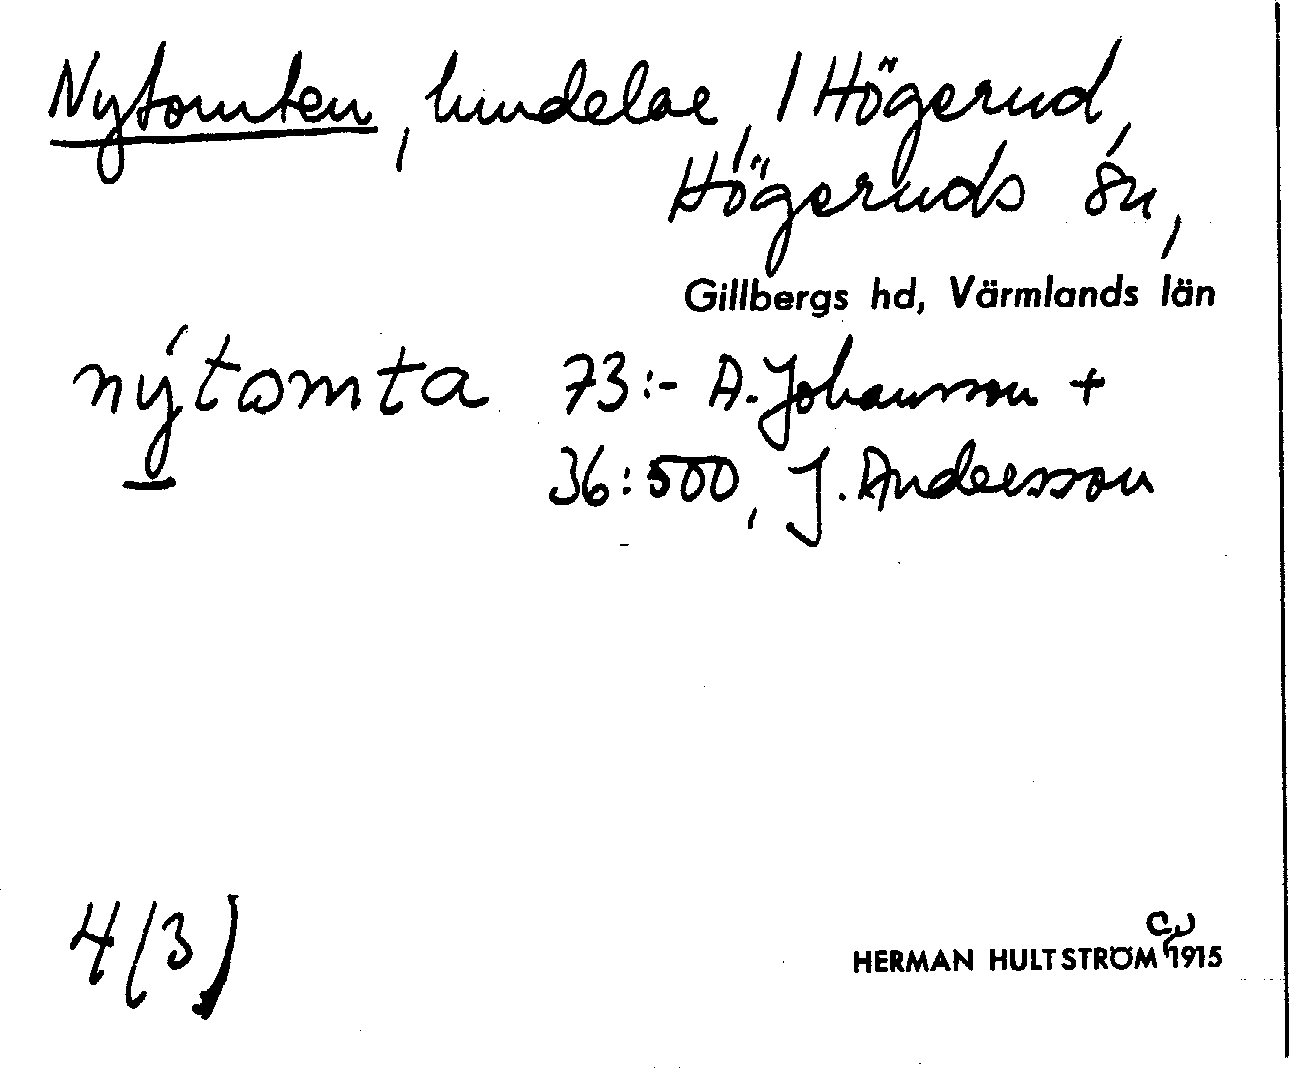 Nytomten, lundelar, 1 Högerud,
Högeruds sn,
Gillbergs hd, Värmlands län
nýtomta 73:- A. Johansson +
36:500, J. Andersson
4(3)
HERMAN HULTSTRÖM 1915